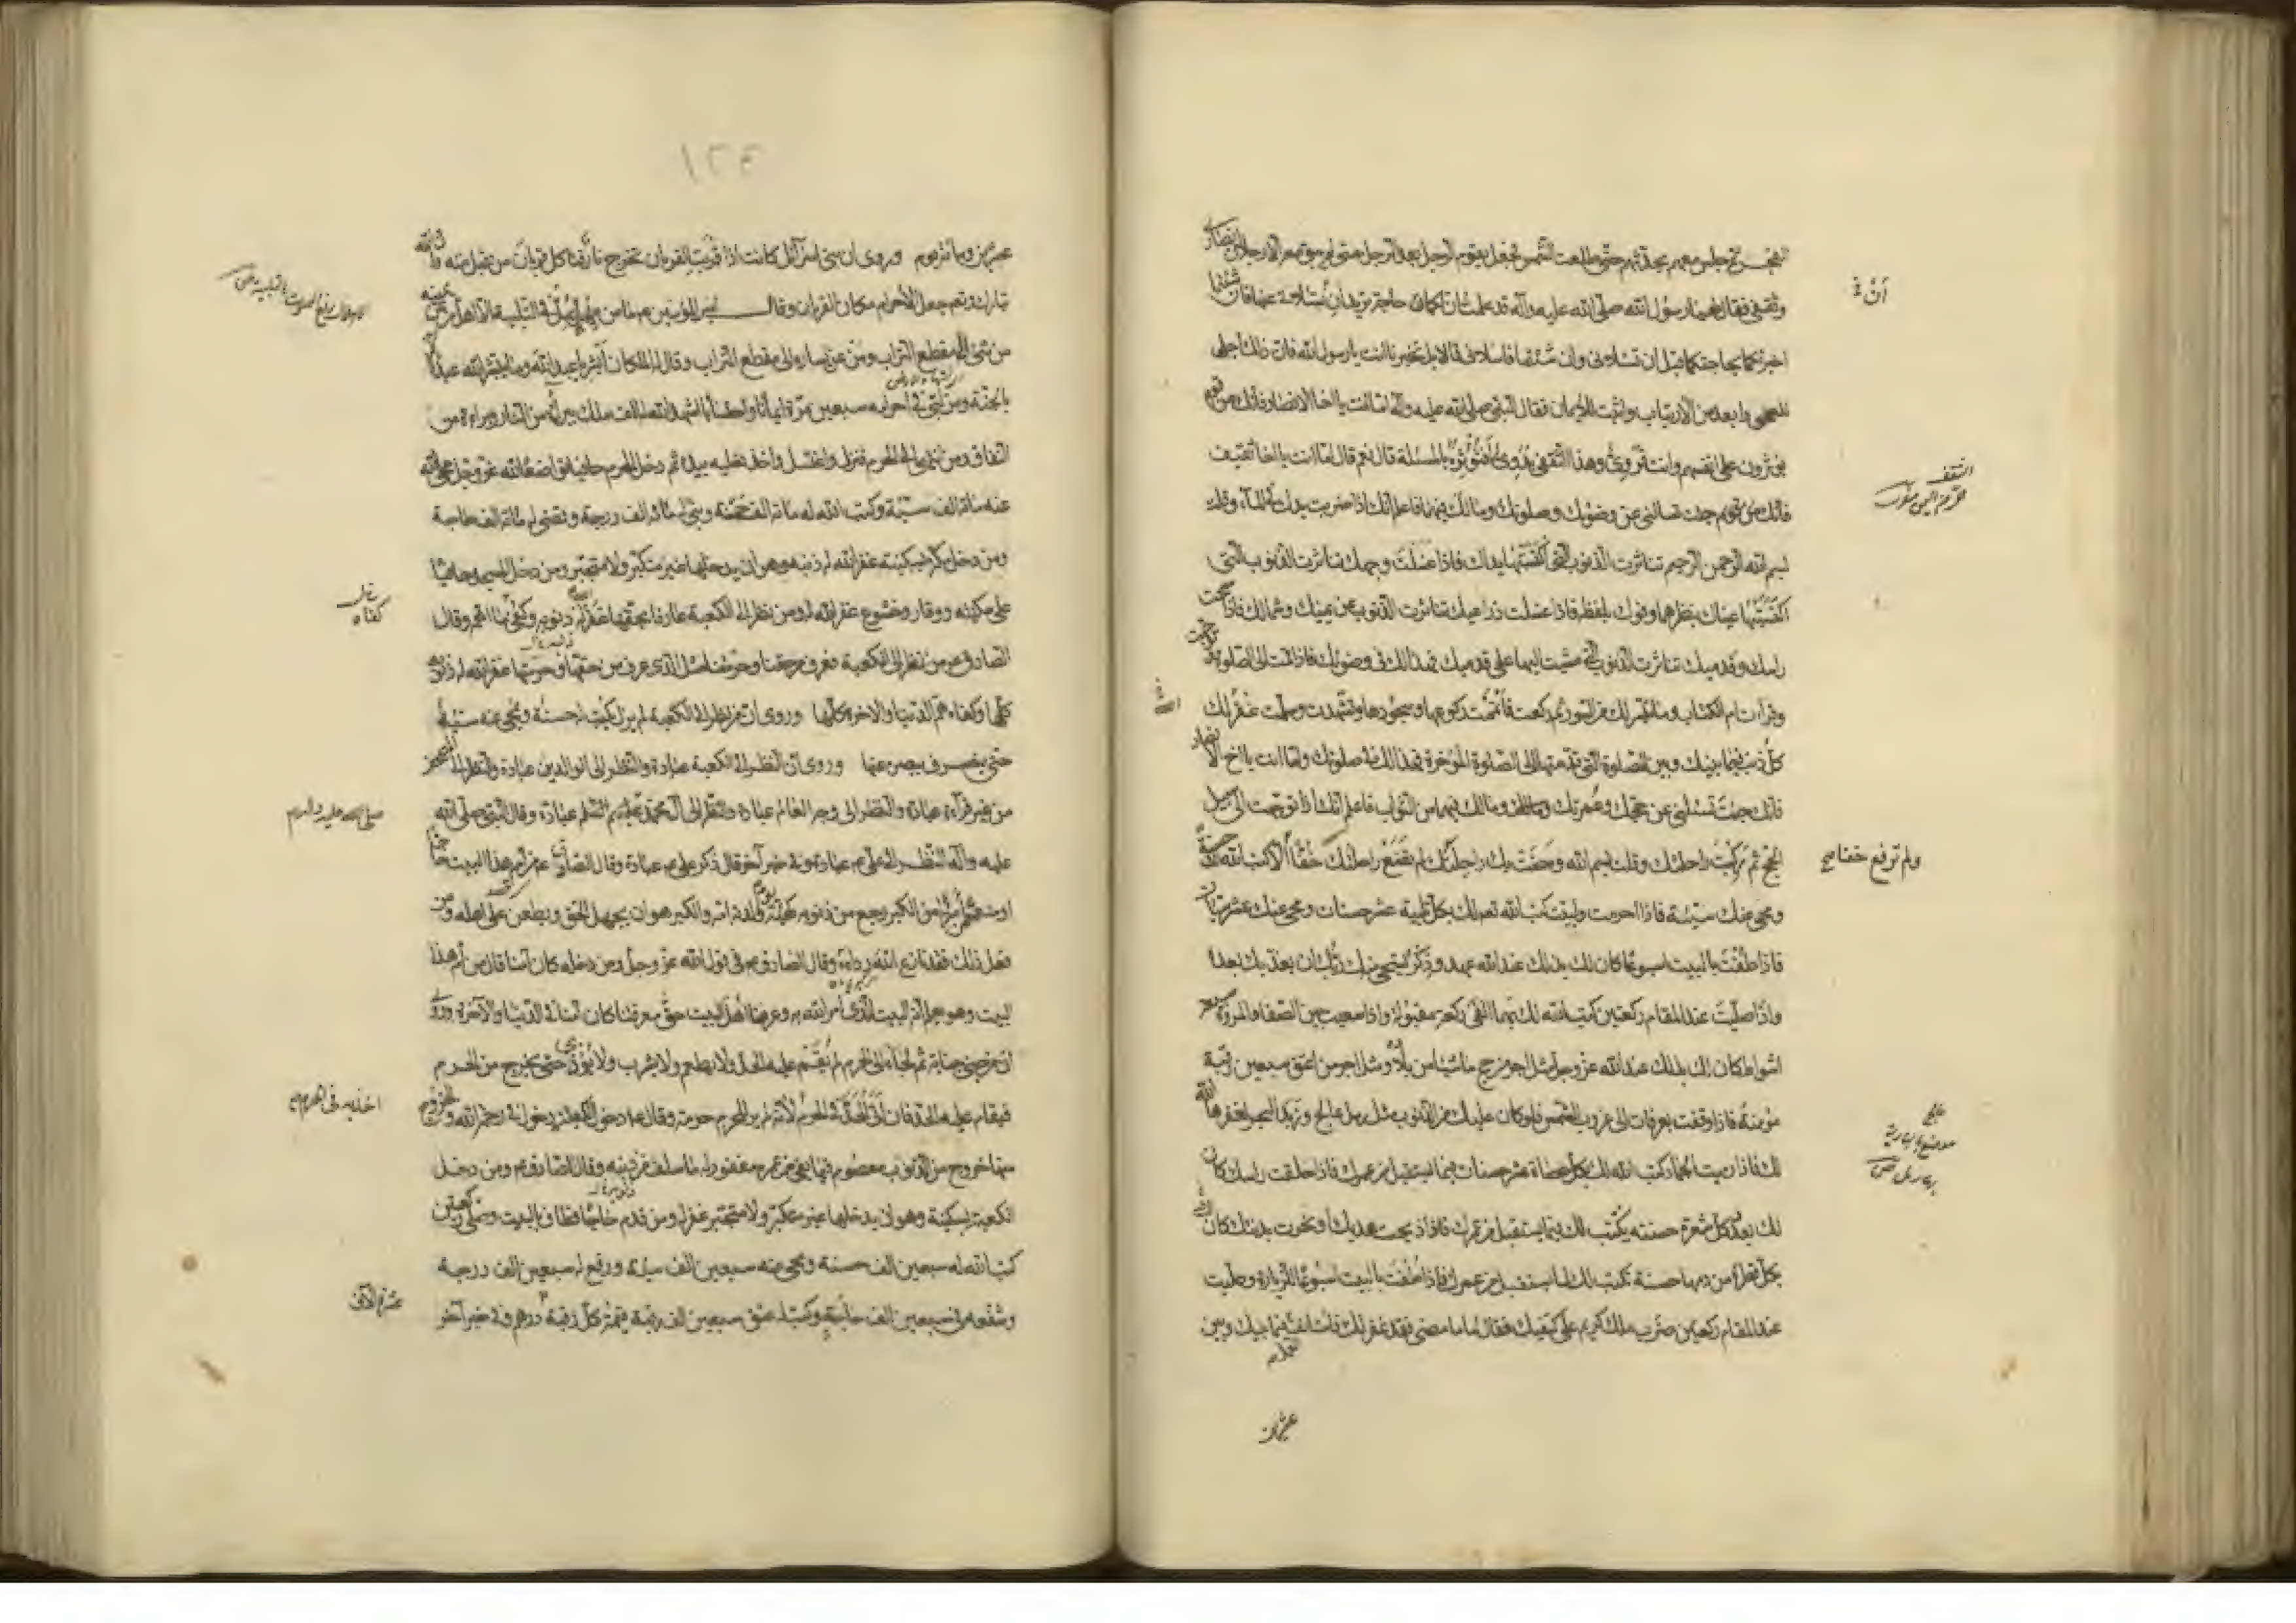 الفجر ثم جلس معهم يحدثهم حتى طلعت الشمس فجعل يقوم الرجل بعد الرجل حتى لم يبق معه الا رجلان انصارى
وثقفى فقال لهما رسول الله صلى الله عليه وآله قد علمت ان لكما حاجة تريدان ان تسئلا عنها فان شئتما
اخبرتكما بحاجتكما قبل ان تسئلانى وان شئتما فاسئلانى قالا بل تخبرنا انت يا رسول الله فان ذلك اجلى
للعمى وابعد من الارتياب واثبت للايمان فقال النبى صلى الله عليه وآله اما انت يا اخا الانصار فانك من قوم
يؤثرون على انفسهم وانت قروى وهذا الثقفى بدوى افتؤثره بالمسئلة قال نعم قال اما انت يا اخا ثقيف
فانك جئت تسألنى عن وضوئك وصلوتك ومالك فيهما فاعلم انك اذا ضربت يدك فى الماء وقلت
بسم الله الرحمن الرحيم تناثرت الذنوب التى اكتسبتها يداك فاذا غسلت وجهك تناثرت الذنوب التى
اكتسبتها عيناك بنظرهما وفوك بلفظه فاذا غسلت ذراعيك تناثرت الذنوب عن يمينك وشمالك فاذا مسحت
راسك وقدميك تناثرت الذنوب التى مشيت اليها على قدميك فهذا لك فى وضوئك فاذا قمت الى الصلوة وتوجهت
وقرأت ام الكتاب وما تيسر لك من السور ثم ركعت فاتممت ركوعها وسجودها وتشهدت وسلمت غفر لك
كل ذنب فيما بينك وبين الصلوة التى قدمتها الى الصلوة المؤخرة فهذا لك فى صلوتك واما انت يا اخا الانصار
فانك جئت تسئلنى عن حجك وعمرتك ومالك فيهما من الثواب فاعلم انك اذا توجهت الى سبيل
الحج ثم ركبت راحلتك وقلت بسم الله ومضت بك راحلتك لم تضع راحلتك خفا الا كتب الله لك حسنة
ومحى عنك سيئة فاذا احرمت ولبيت كتب الله تعم لك بكل تلبية عشر حسنات ومحى عنك عشر سيئات
فاذا طفت بالبيت اسبوعا كان لك بذلك عند الله عهد وذكر يستحيى منك ربك ان يعذبك بعده
واذا صليت عند المقام ركعتين كتب الله لك بهما الفى ركعة مقبولة واذا سعيت بين الصفا والمروة سبعة
اشواط كان لك بذلك عند الله عز وجل مثل اجر من حج ماشيا من بلاده ومثل اجر من اعتق سبعين رقبة
مؤمنة فاذا وقفت بعرفات الى غروب الشمس فلو كان عليك من الذنوب مثل رمل عالج وزبد البحر لغفرها الله
لك فاذا رميت الجمار كتب الله لك بكل حصاة عشر حسنات فيما تستقبل من عمرك فاذا حلقت راسك كان
لك بعدد كل شعرة حسنة يكتب لك فيما تستقبل من عمرك فاذا ذبحت هديك او نحرت بدنتك كان لك
بكل قطرة من دمها حسنة تكتب لك لما تستقبل من عمرك فاذا طفت بالبيت اسبوعا للزيارة وصليت
عند المقام ركعتين ضرب ملك كريم على كتفيك فقال اما ما مضى فقد غفر لك فاستانف فيما بينك وبين
ان
الثقف
ولم ترفع خفا صح
عالج
موضع بالبادية
١٢٤
عشرين ومائة يوم وروى ان بنى اسرائيل كانت اذا قربت القربان تخرج نار فتاكل قربان من قبل منه وان الله
تبارك وتعم جعل الاحرام مكان القربان وقال امير المؤمنين ع ما من مهل يهل فى التلبية الا اهل من عن يمينه
من شئ الى مقطع التراب ومن عن يساره الى مقطع التراب وقال له الملكان ابشر يا عبد الله وما يبشر الله عبدا الا
بالجنة ومن لبى فى احرامه سبعين مرة ايمانا واحتسابا اشهد الله له الف ملك ببراءة من النار وبراءة من
النفاق ومن انتهى الى الحرم فنزل واغتسل واخذ نعليه بيده ثم دخل الحرم حافيا تواضعا لله عز وجل محى الله
عنه مائة الف سيئة وكتب الله له مائة الف حسنة وبنى له مائة الف درجة وقضى له مائة الف حاجة
ومن دخل مكة بسكينة غفر الله له ذنبه وهو ان يدخلها غير متكبر ولا متجبر ومن دخل المسجد حافيا
على سكينة ووقار وخشوع غفر الله له ومن نظر الى الكعبة عارفا بحقها غفر الله له ذنوبه وكفى ما اهمه وقال
الصادق ع من نظر الى الكعبة فعرف من حقنا وحرمتنا مثل الذى عرف من حقها وحرمتها غفر الله له ذنوبه
كلها وكفاه هم الدنيا والاخرة كلها وروى ان من نظر الى الكعبة لم يزل يكتب له حسنة ويمحى عنه سيئة
حتى يصرف ببصره عنها وروى ان النظر الى الكعبة عبادة والنظر الى الوالدين عبادة والنظر الى المصحف
من غير قراءة عبادة والنظر الى وجه العالم عبادة والنظر الى آل محمد عليهم السلم عبادة وقال النبى صلى الله
عليه وآله النظر الى على ع عبادة وفى خبر آخر قال ذكر على ع عبادة وقال الصادق ع من ام هذا البيت حاجا
او معتمرا مبرءا من الكبر رجع من ذنوبه كهيئة يوم ولدته امه والكبر هو ان يجهل الحق ويطعن على اهله ومن
فعل ذلك فقد نازع الله رداءه وقال الصادق ع فى قول الله عز وجل ومن دخله كان آمنا قال من ام هذا
البيت وهو يعلم انه البيت الذى امر الله به وعرفنا اهل البيت حق معرفتنا كان آمنا فى الدنيا والآخرة وروى
ان من جنى جناية ثم لجأ الى الحرم لم يقم عليه الحد ولا يطعم ولا يشرب ولا يؤذى حتى يخرج من الحرم
فيقام عليه الحد فان اتى الحد فى الحرم لانه لم ير للحرم حرمة وقال ع دخول الكعبة دخول فى رحمة الله والخروج
منها خروج من الذنوب معصوم فيما بقى من عمره مغفور له ما سلف من ذنبه وقال الصادق ع ومن دخل
الكعبة بسكينة وهو ان يدخلها غير متكبر ولا متجبر غفر له ومن قدم حاجا فطاف بالبيت وصلى ركعتين
كتب الله له سبعين الف حسنة ومحى عنه سبعين الف سيئة ورفع له سبعين الف درجة
وشفعه فى سبعين الف حاجة وكتب له عتق سبعين الف رقبة قيمة كل رقبة درهم وفى خبر آخر
كفاه
صلى الله عليه وآله
اخذ به فى الحرم
عشرة الآف